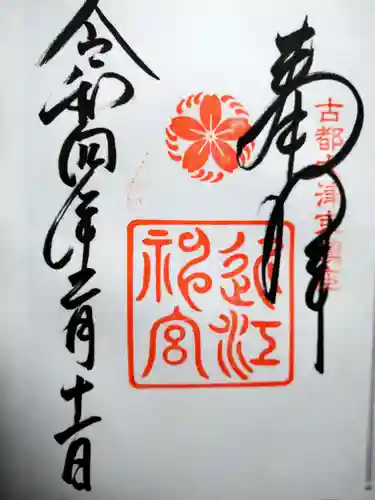 奉拝
古都大津
近江
神宮
令和四年十一月十一日